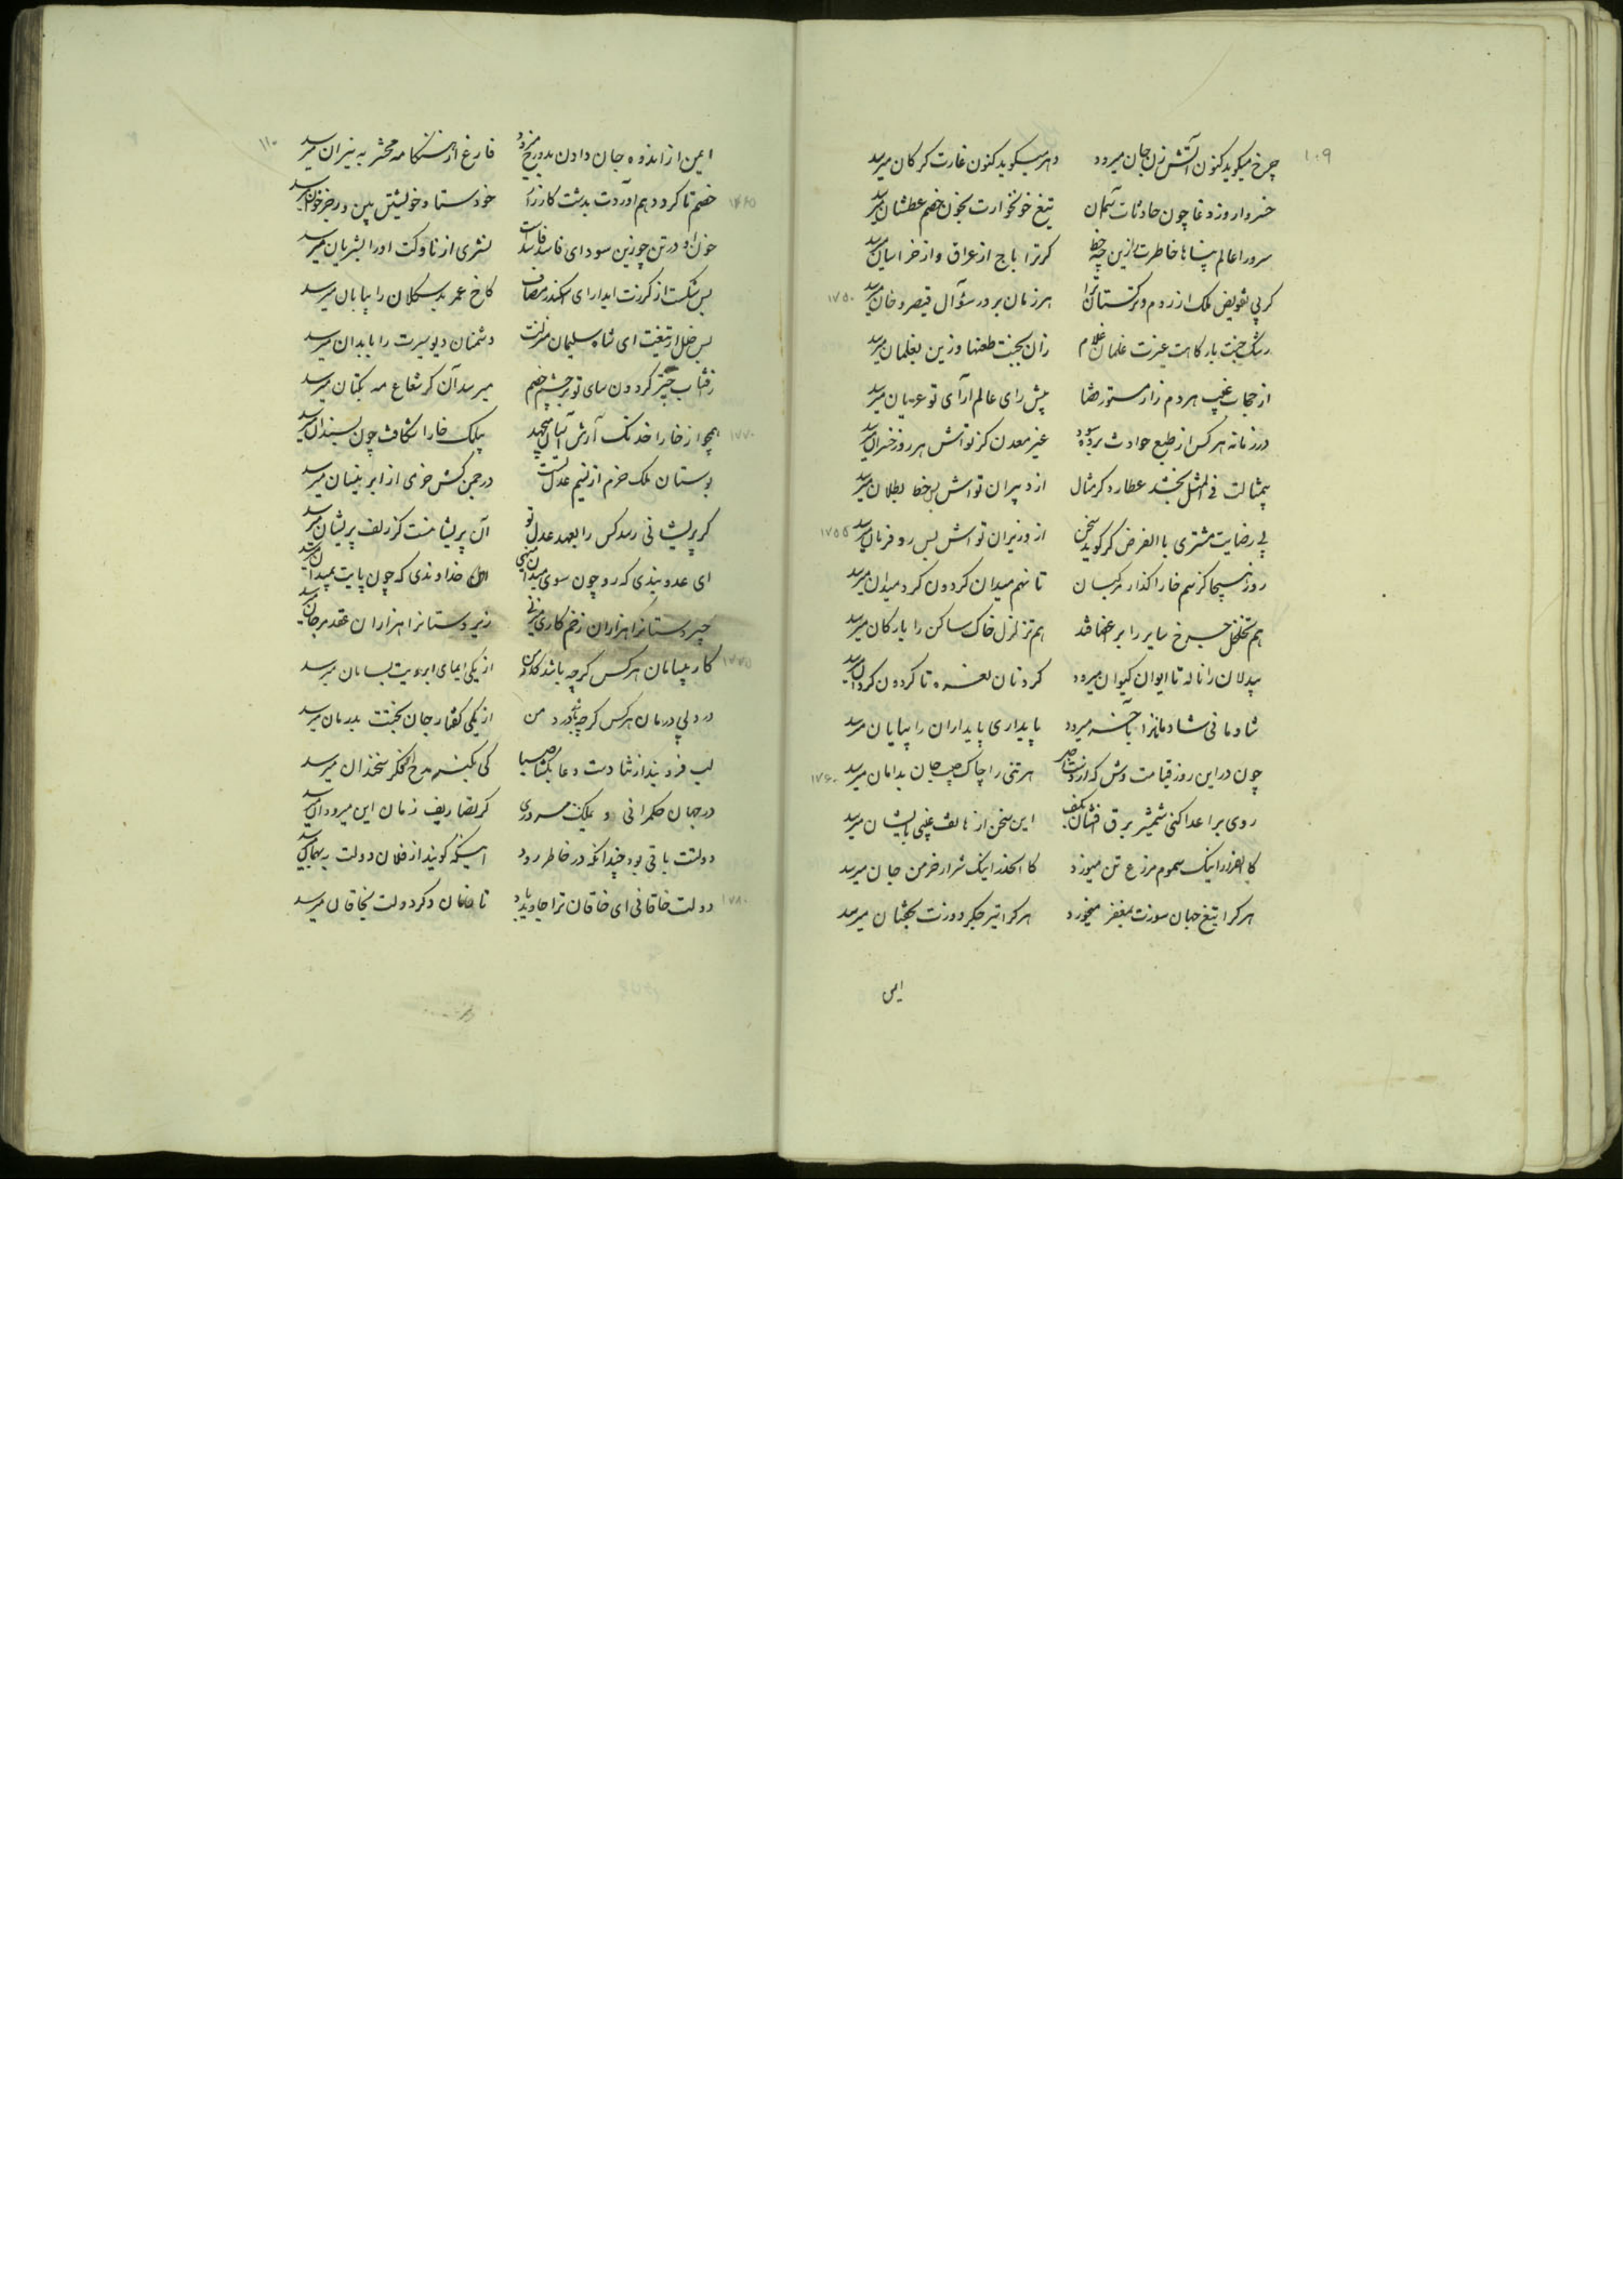 ۱۰۹
چرخ میکوید کنون آتش زن جان میرود دهر میکوید کنون غارت کر کان میرسد
خسروا روز وغا چون حادثات آسمان تیغ خونخوارت بخون خصم عطشان میرسد
سرورا عالم پناها خاطرت را زین چه حظ کر ترا باج از عراق و از خراسان میرسد
کر پی تفویض ملک از روم و ترکستان ترا هر زمان بر در سؤال قیصر و خان میرسد ۱۷۵۰
رشک جنت بارکاهت غیرت غلمان غلام زان بجنت طعنها و زین بغلمان میرسد
از حجاب غیب هر دم راز مستور قضا پیش رای عالم آرای تو عریان میرسد
در زمانه هر کس از طبع حوادث برد سود غیر معدن کز تواش هر روز خسران میرسد
بیمثالت فی المثل بخشد عطارد کر مثال از دبیران تواش بس خط بطلان میرسد
بی رضایت مشتری بالفرض کر کوید سخن از وزیران تواش بس رد فرمان میرسد ۱۷۵۵
روز هیجا کز سم خارا کذار مرکبان تا نهم میدان کردون کرد میدان میرسد
هم تخلخل چرخ سایر را بر اعضا فتد هم تزلزل خاک ساکن را بارکان میرسد
بیدلان را ناله تا ایوان کیوان میرود کردنان نعره تا کردون کردان میرسد
شادمانی شادمانرا بآخر میرود پایداری پایداران را بپایان میرسد
چون در این روز قیامت وش که هر تنی را چاک جیب جان بدامان میرسد ۱۷۶۰
روی بر اعدا کنی شمشیر برق افشان بکف این سخن از هاتف غیبی بایشان میرسد
کالفرار اینک سموم مزرع تن میوزد کالحذر اینک شرار خرمن جان میرسد
هر کرا تیغ جهان سوزت بمغفر میخورد هر کرا تیر جکر دوزت بخفتان میرسد
ایمن
۱۱۰
ایمن از اندوه جان دادن بدوزخ میرود فارغ از هنکامه محشر به نیران میرسد
خصم تا کرد دهم آوردت بدشت کارزار خودستا و خویشتن بین و رجز خوان میرسد ۱۷۶۵
خون او در تن چو زین سودای فاسد فاسد است نشتری از ناوکت او را بشریان میرسد
بس شکست از کرزت ای دارای اسکندر مصاف کاخ عمر بدسکالان را ببنیان میرسد
بس خلل از تیغت ای شاه سلیمان منزلت دشمنان دیو سیرت را بابدان میرسد
زآفتاب چتر کردون سای تو بر چشم خصم میرسد آن کز شعاع مه بکتان میرسد
همچو از خارا خدنک آرش آسان میجهد بیلک خارا شکافت چون بسندان میرسد ۱۷۷۰
بوستان ملک خرم از نسیم عدل تست در چمن کش خرمی از ابر نیسان میرسد
کر پریشانی رسد کس را بعهد عدل تو آن پریشانیست کز زلف پریشان میرسد
ای عدو بندی که رو چون سوی میدان مینهی ای خداوندی که چون پایت بمیدان میرسد
چیردستانرا هزاران زخم کاری میزنی زیردستانرا هزاران عقد مرجان میرسد
کار بیسامان هر کس کرچه باشد کار من از یکی ایمای ابرویت بسامان میرسد ۱۷۷۵
درد بی درمان هر کس کرچه باشد درد من از یکی کفتار جان بخشت بدرمان میرسد
لب فرو بند از ثنا دست دعا بکشا صبا کی بکنه مدح او فکر سخندان میرسد
در جهان حکمرانی و ملک سروری کز تصاریف زمان این میرود آن میرسد
دولتت باقی بود چندانکه در خاطر رود اینکه کویند از فلان دولت به بهمان میرسد
دولت خاقانی ای خاقان ترا جاوید باد تا خاقان دکر دولت بخاقان میرسد ۱۷۸۰